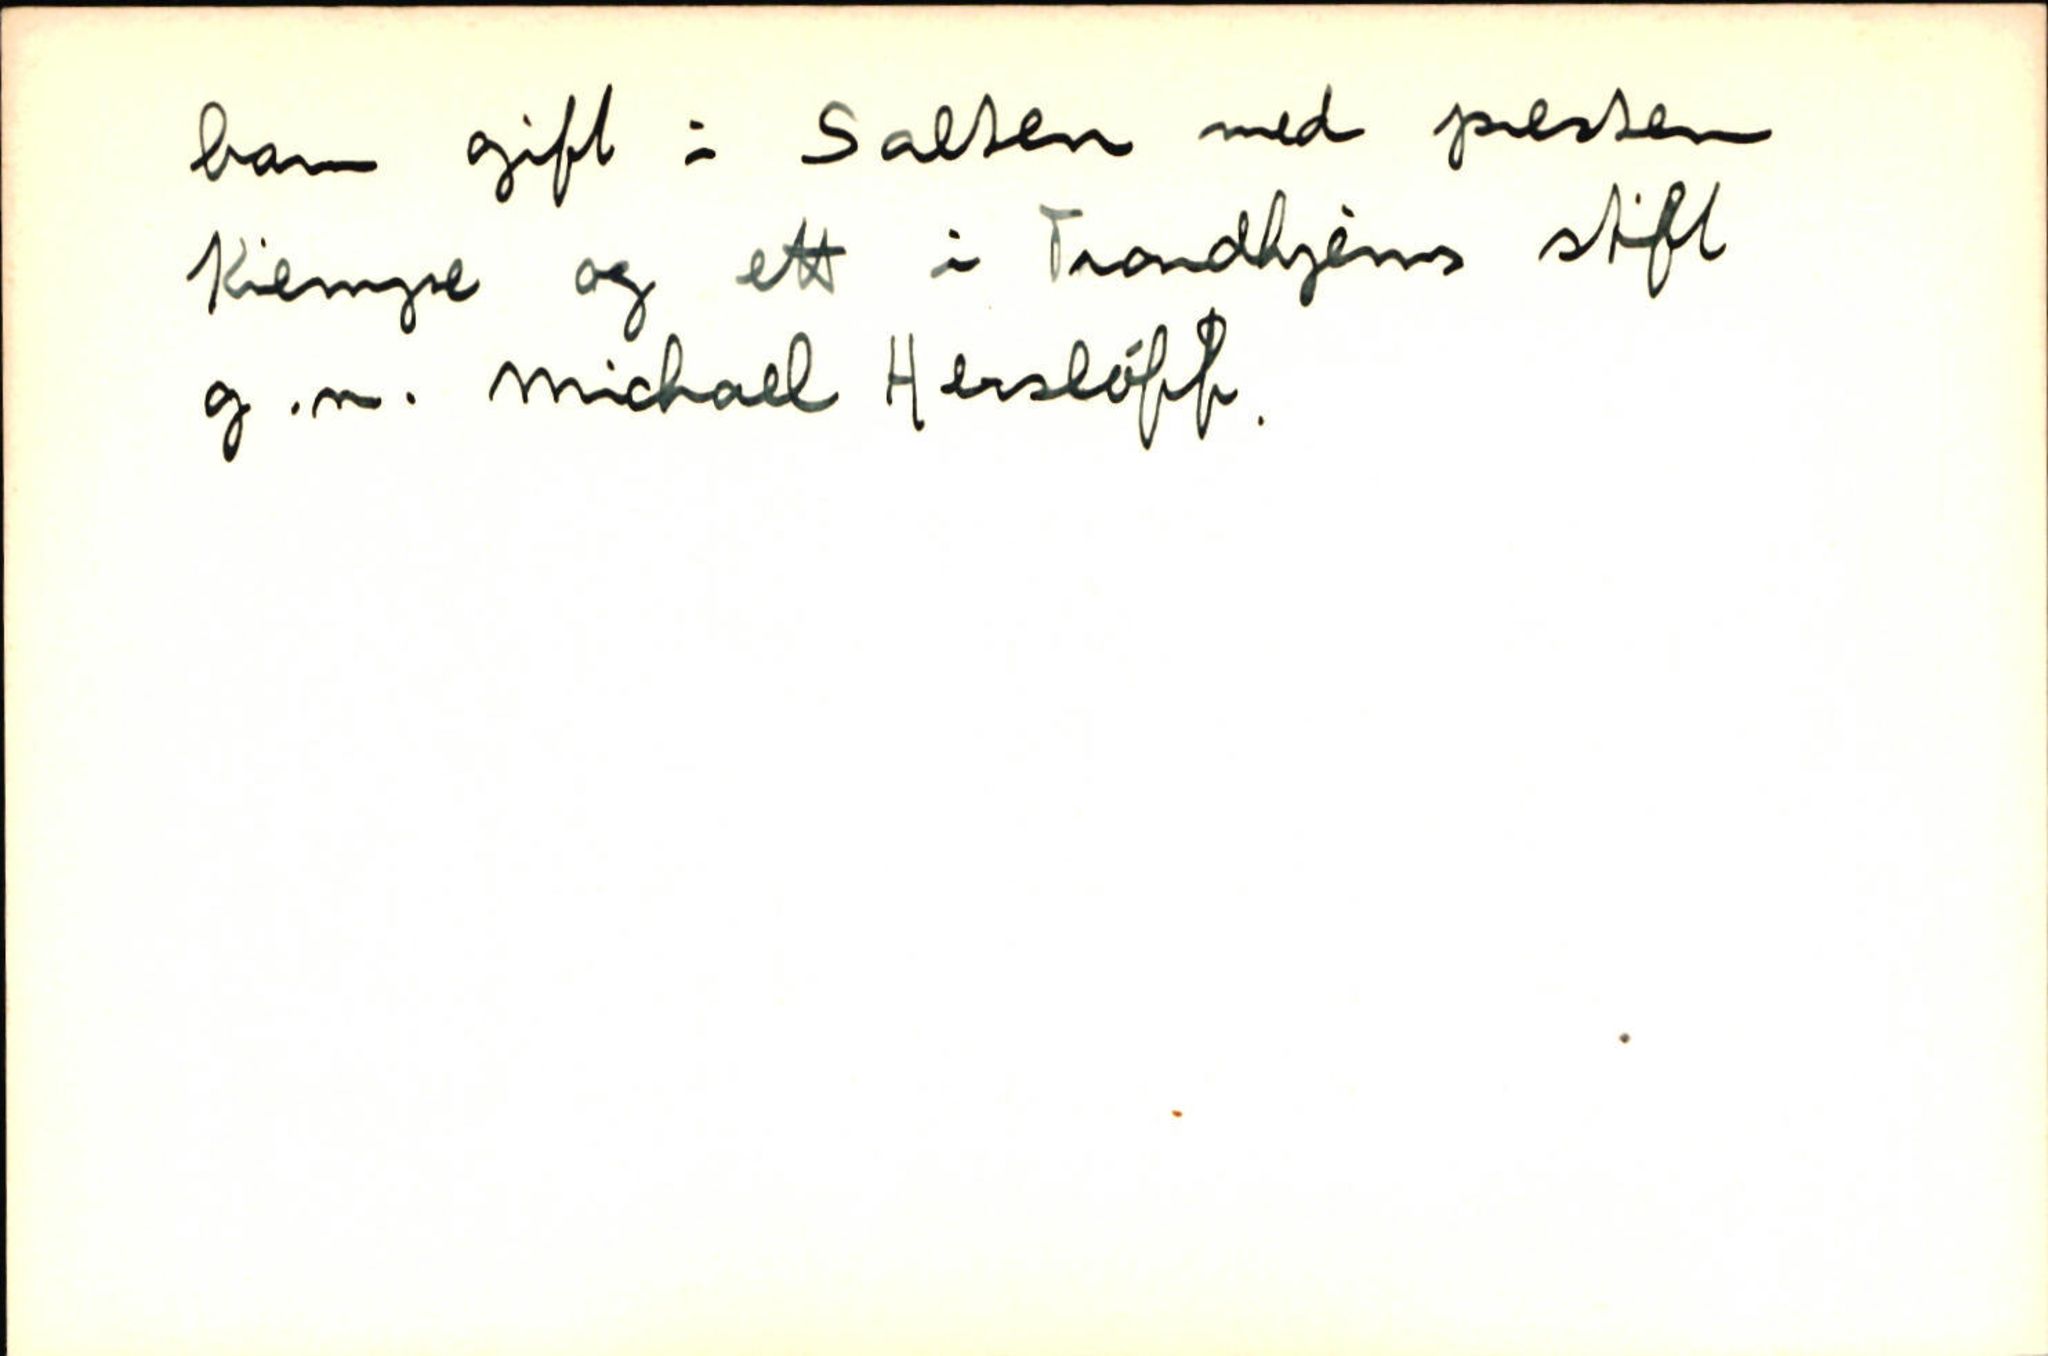 barn gift i Salten med presten
Kiempe og ett i Trondhjems stift
g.m. Michael Hersløff.